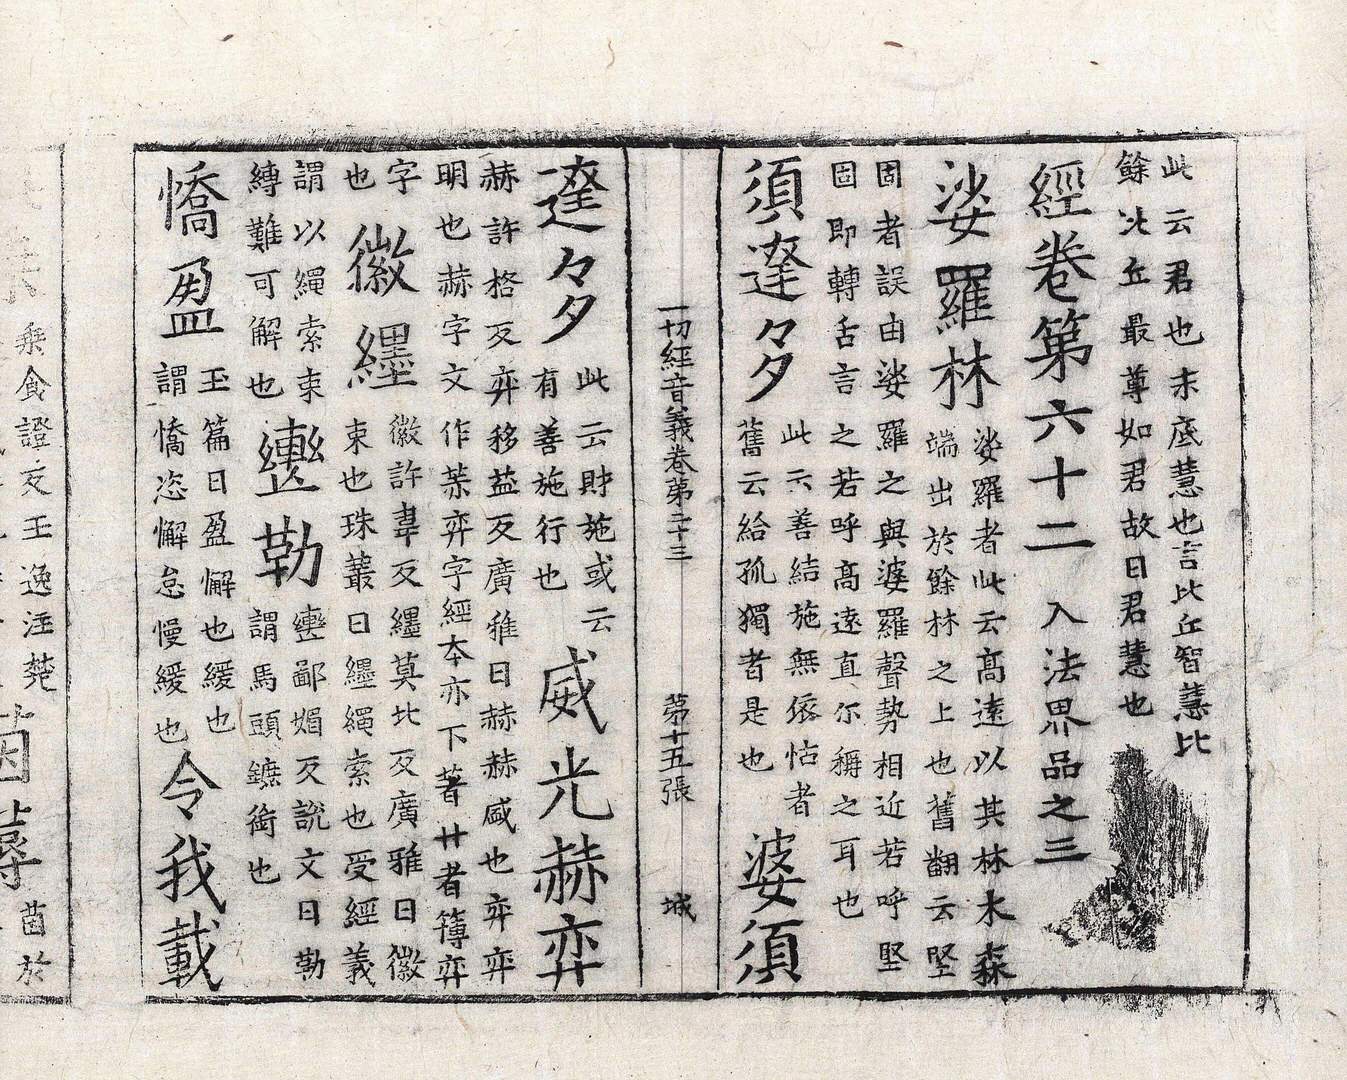 此云君也末底慧也言比丘智慧比
餘比丘最尊如君故曰君慧也
經卷第六十二 入法界品之三
娑羅林 娑羅者此云高遠以其林木森
端出於餘林之上也舊翻云堅
固者誤由娑羅之與婆羅聲勢相近若呼堅
固即轉舌言之若呼高遠直尓稱之耳也
須達多 此云善結施無依怙者
舊云給孤獨者是也 婆須
一切經音義卷第二十三 第十五張 城
達多 此云財施或云
有善施行也 威光赫弈
赫許格反弈移益反廣雅曰赫赫盛也弈弈
明也赫字文作桼弈字經本亦下著廾者簿弈
字
也 徽纆 徽許韋反纆莫北反廣雅曰徽
束也珠叢曰纆繩索也受經義
謂以繩索束
縛難可解也 轡勒 轡鄙媚反說文曰勒
謂馬頭鑣銜也
憍盈 玉篇曰盈懈也緩也
謂憍恣懈怠慢緩也 令我載
乗食證反王逸注楚
茵蓐 茵於